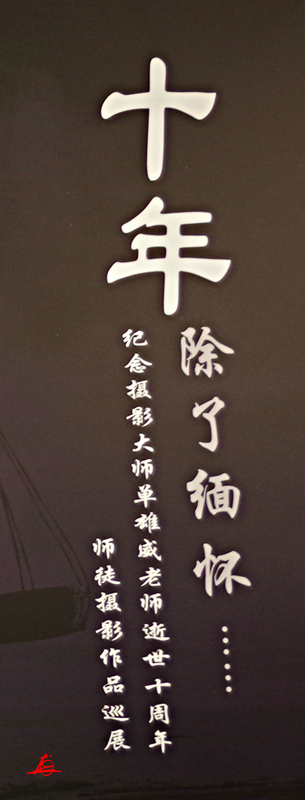 十年
除了缅怀……
纪念摄影大师单雄威老师逝世十周年
师徒摄影作品巡展